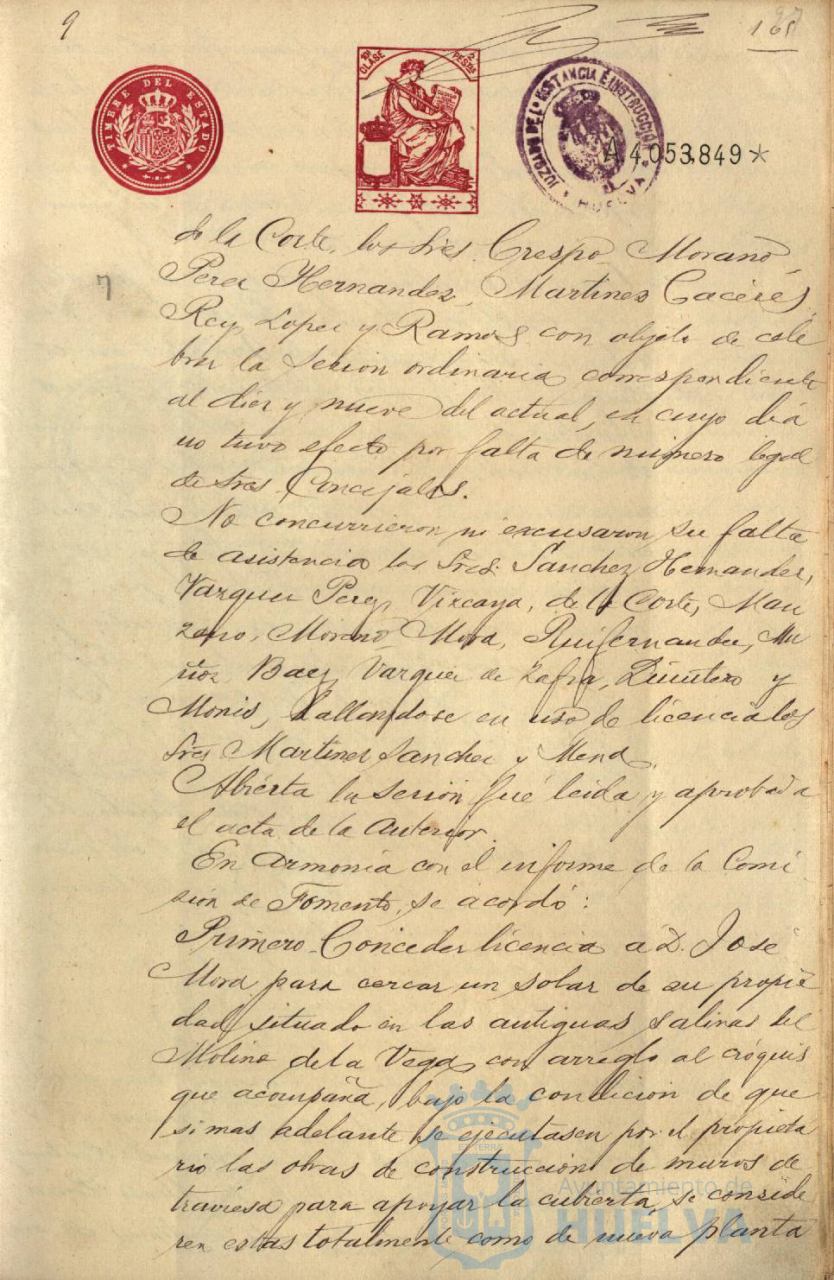 9
165
TIMBRE DEL ESTADO
10ª CLASE 2 PESETAS
JUZGADO DE 1ª INSTANCIA E INSTRUCCION HUELVA
A4.053.849*
7
de la Corte, los Sres. Crespo, Morano,
Perez Hernandez, Martinez Caceres,
Rey Lopez y Ramos con objeto de cele
brar la sesion ordinaria correspondiente
al diez y nueve del actual, en cuyo dia
no tuvo efecto por falta de número legal
de Sres. Concejales.
No concurrieron ni excusaron su falta
de asistencia los Sres. Sanchez Hernandez,
Vazquez Perez, Vizcaya, de la Corte, Man
zano, Moreno, Mora, Ruifernandez, Mu
ñoz, Baez, Vazquez de Zafra, Quintero y
Monis, hallandose en uso de licencia los
Sres. Martinez Sanchez y Mena.
Abierta la sesion fué leida y aprobada
el acta de la anterior.
En armonia con el informe de la Comi
sión de Fomento, se acordó:
Primero. Conceder licencia á D. José
Mora para cercar un solar de su propie
dad, situado en las antiguas salinas del
Molino de la Vega con arreglo al cróquis
que acompaña, bajo la condicion de que
si mas adelante se ejecutasen por el propieta
rio las obras de construccion de muros de
traviesa para apoyar la cubierta, se conside
ren estas totalmente como de nueva planta
Ayuntamiento de
HUELVA